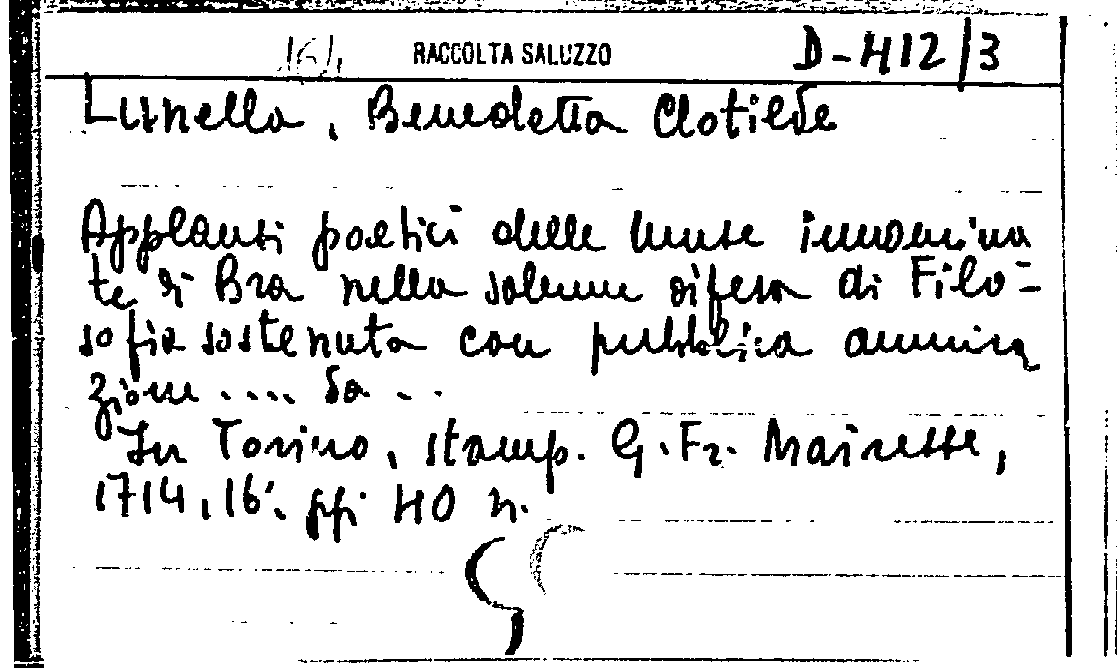 164 RACCOLTA SALUZZO D-412/3
Lunella, Benedetta Clotilde
Applausi poetici delle Muse innomina
te di Bra nella solenne difesa di Filo=
sofia sostenuta con pubblica ammira
zione .... da ...
In Torino, stamp. G. Fr. Mairesse,
1714, 16°. ppi 40 n.